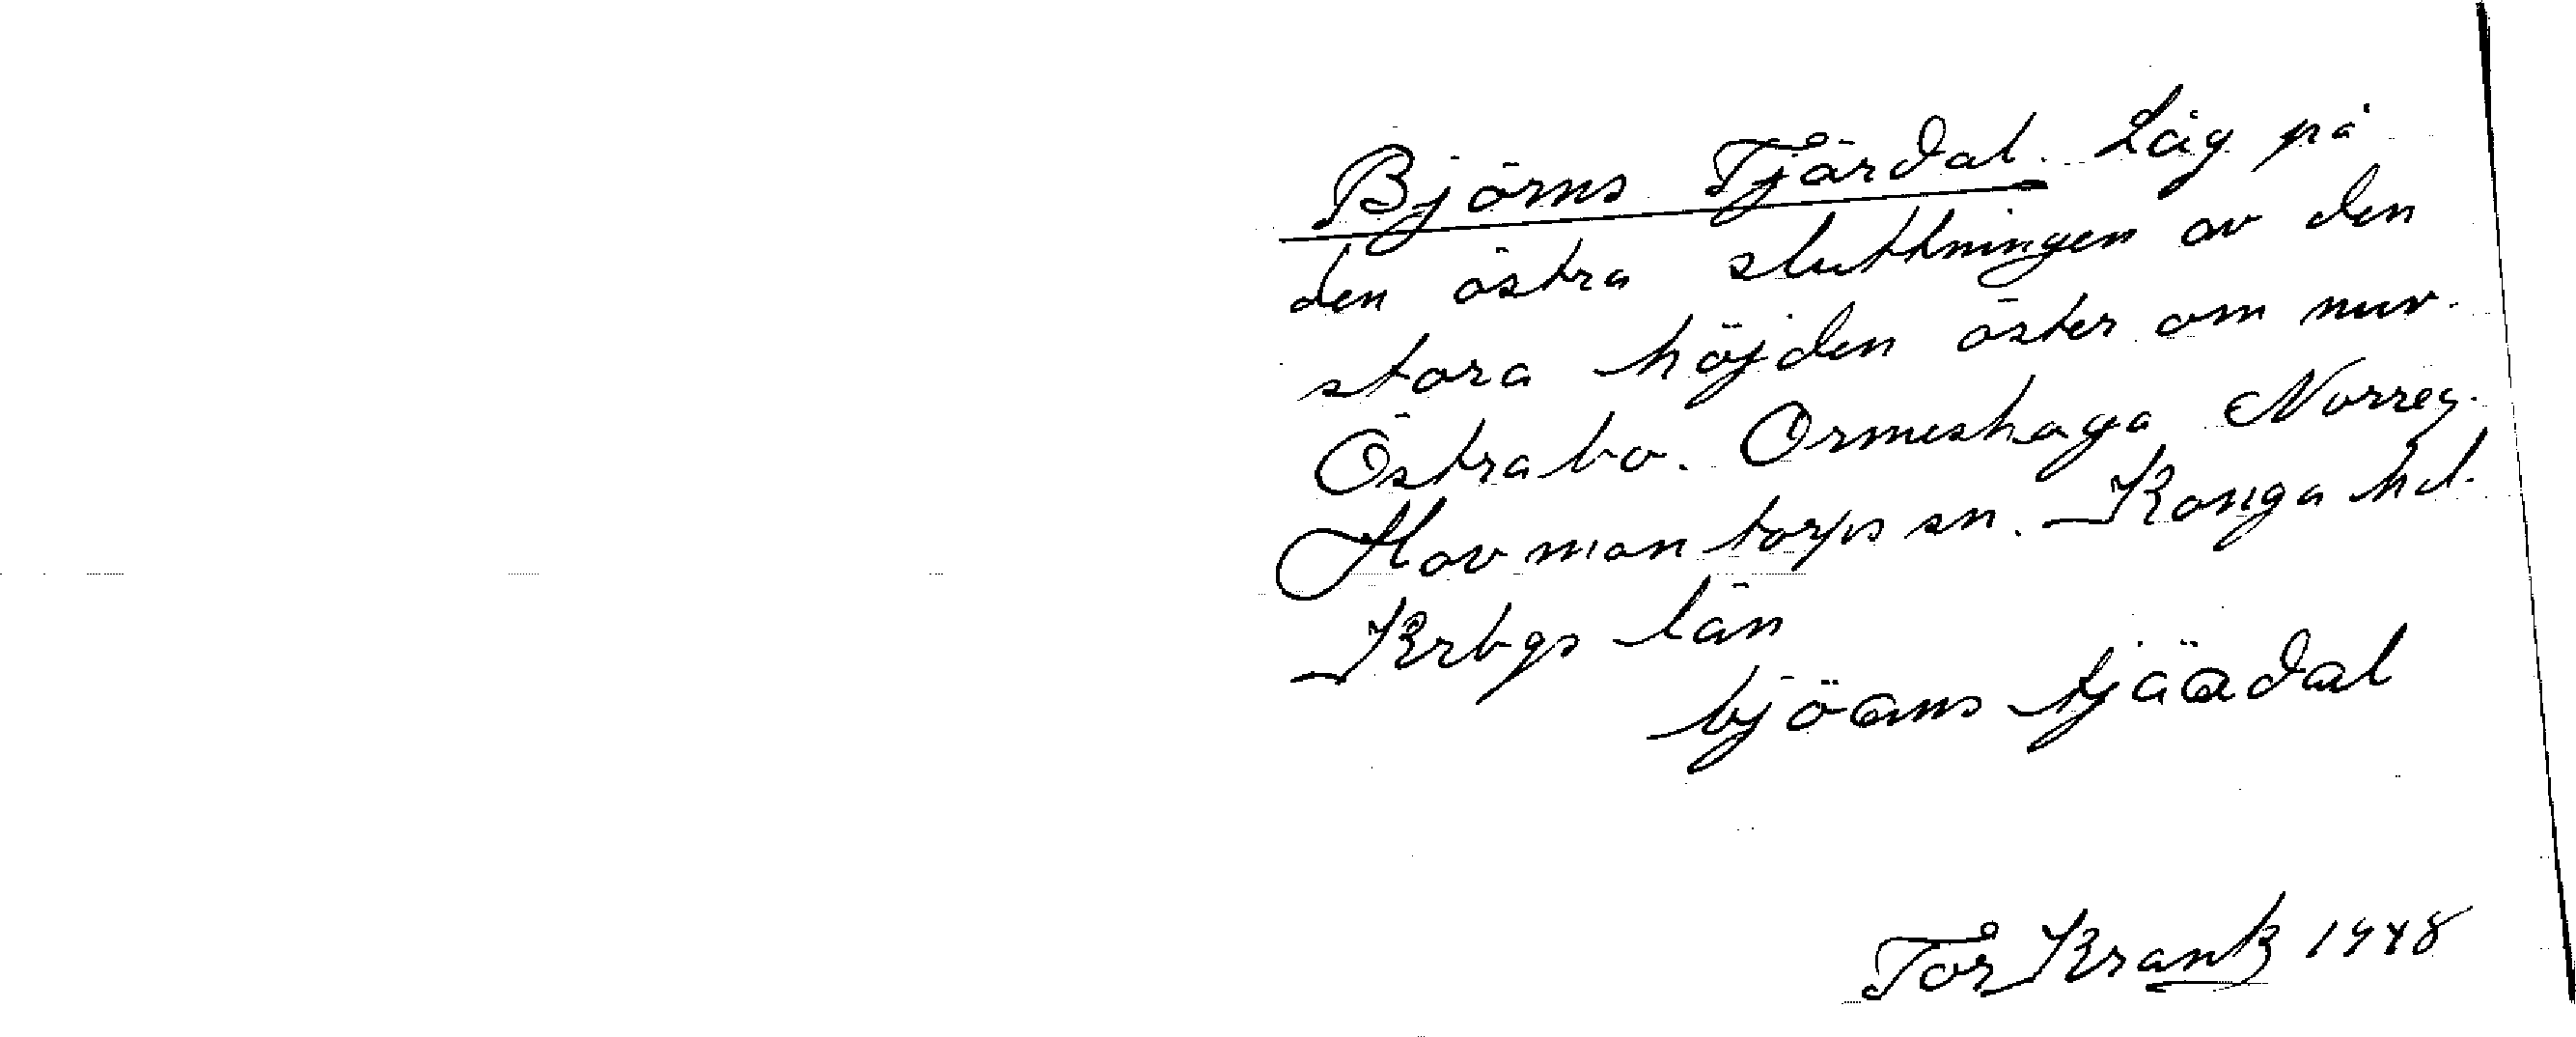 Björns Tjärdal. Låg på
den östra sluttningen av den
stora höjden öster om nuv.
Östrabo. Ormeshaga Norreg.
Hovmantorps sn. Konga hd.
Krbgs län
björns tjäädal
Tor Krank 1948